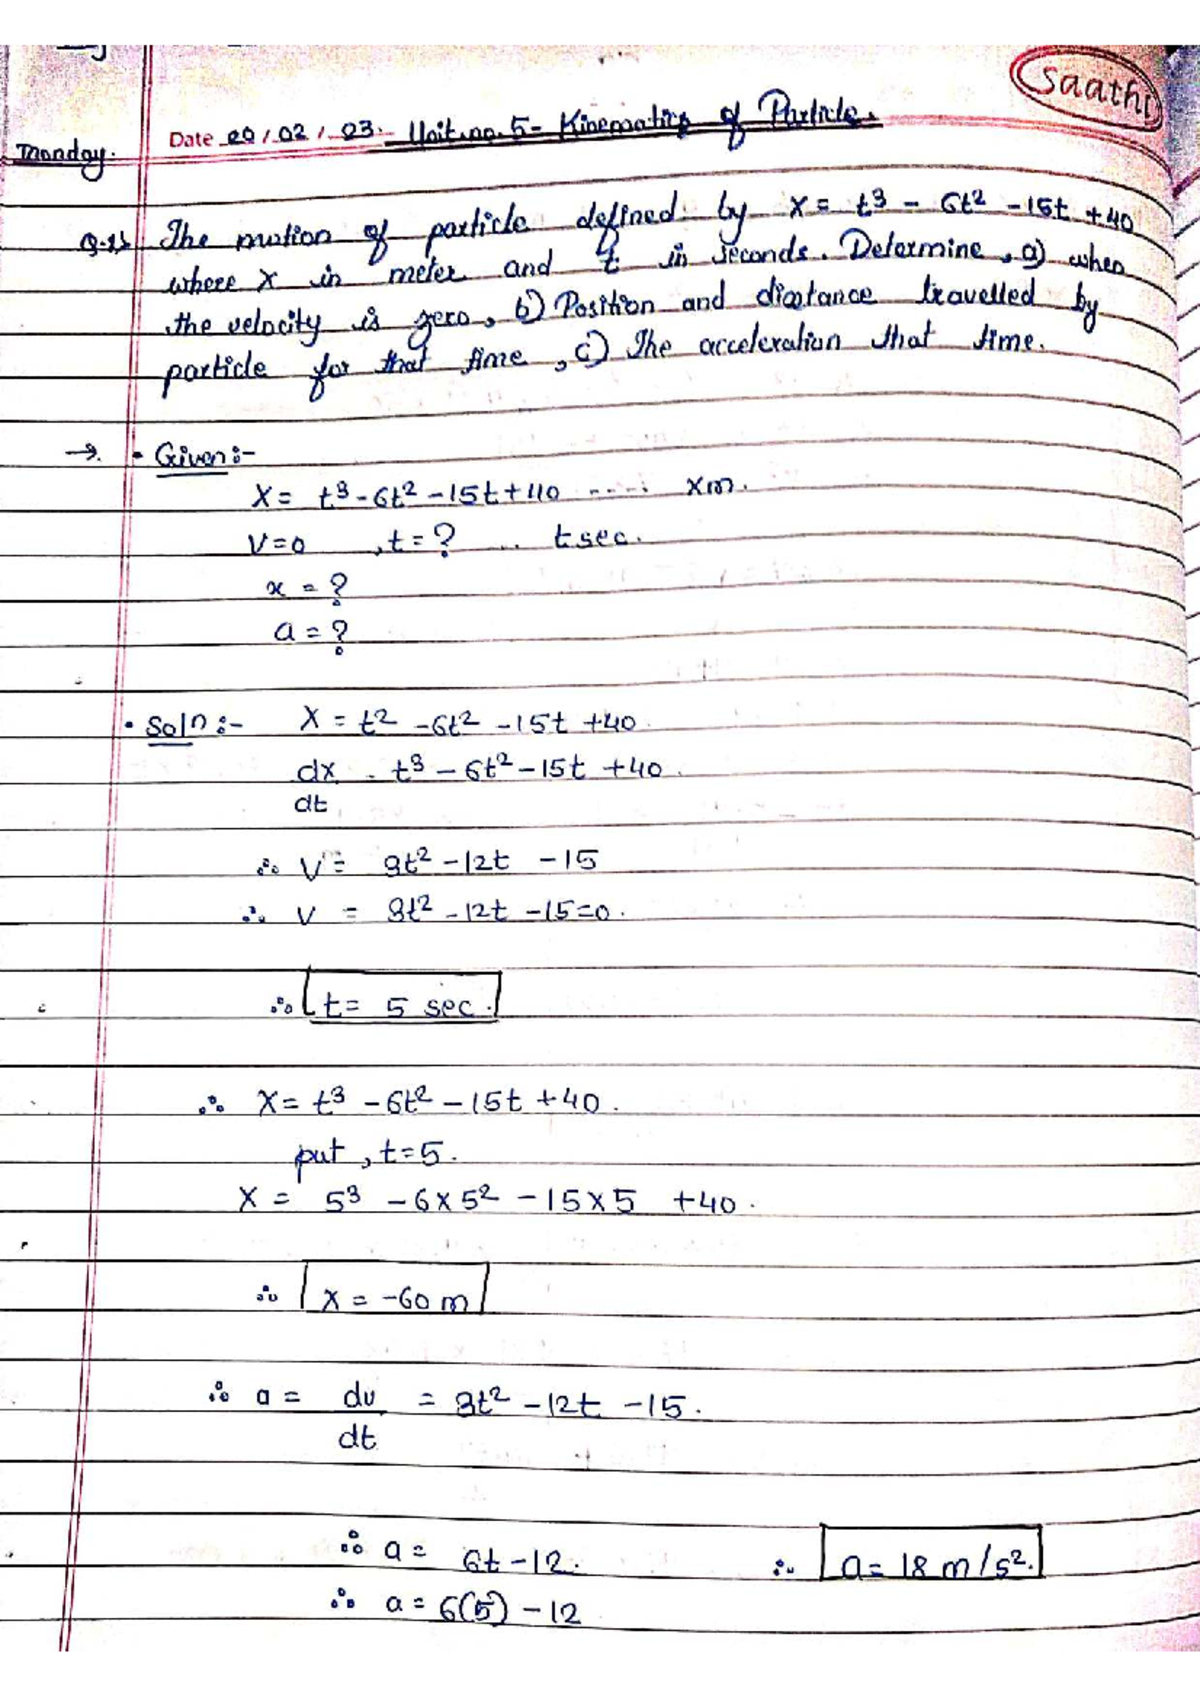 Saathi
Date 20 / 02 / 23. Unit.no. 5 - Kinematics of Particle.
Monday.
Q.1) The motion of particle defined by x = t³ - 6t² - 15t + 40
where x in meter and t in seconds. Determine, a) when
the velocity is zero, b) Position and distance travelled by
particle for that time, c) The acceleration that time.
→ • Given :-
X = t³ - 6t² - 15t + 40 ..... xm.
V=0 , t = ? .. t sec.
x = ?
a = ?
• Soln :- X = t² - 6t² - 15t + 40
dx = t³ - 6t² - 15t + 40
dt
∴ V = 3t² - 12t - 15
∴ v = 3t² - 12t - 15 = 0.
∴ t = 5 sec.
∴ X = t³ - 6t² - 15t + 40.
put, t = 5.
X = 5³ - 6 x 5² - 15 x 5 + 40.
∴ x = -60 m
∴ a = dv = 3t² - 12t - 15.
dt
∴ a = 6t - 12. ∴ a = 18 m/s².
∴ a = 6(5) - 12